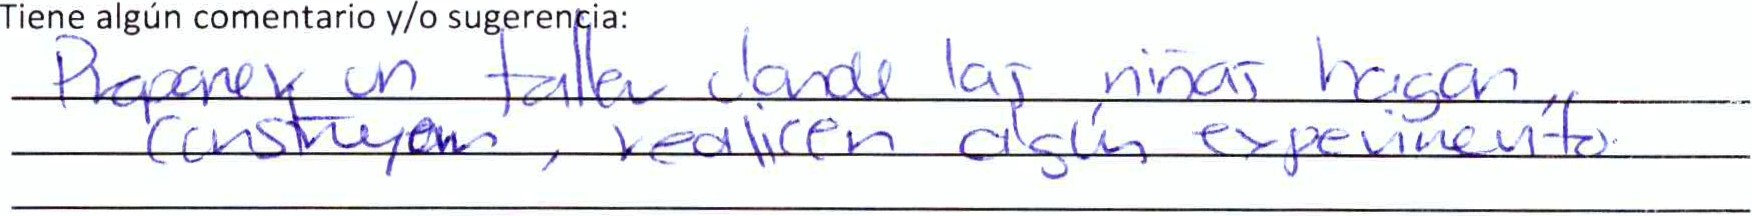 Tiene algún comentario y/o sugerencia:
Proponer un taller donde las niñas hagan,
construyan, realicen algún experimento.